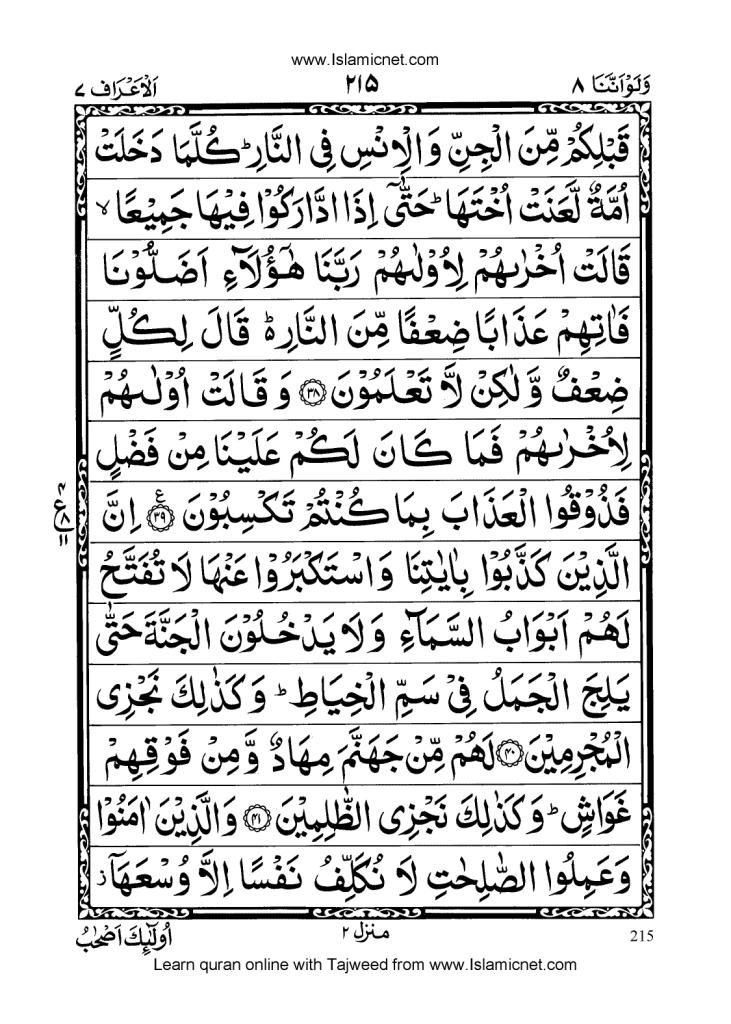 www.Islamicnet.com
وَلَوْ اَنَّنَا ٨
٢١٥
اَلْاَعْرَاف ٧
قَبْلِكُمْ مِّنَ الْجِنِّ وَالْاِنْسِ فِى النَّارِ ؕ كُلَّمَا دَخَلَتْ
اُمَّةٌ لَّعَنَتْ اُخْتَهَا ؕ حَتّٰۤى اِذَا ادَّارَكُوْا فِيْهَا جَمِيْعًا ۙ
قَالَتْ اُخْرٰىهُمْ لِاُوْلٰىهُمْ رَبَّنَا هٰۤؤُلَآءِ اَضَلُّوْنَا
فَاٰتِهِمْ عَذَابًا ضِعْفًا مِّنَ النَّارِ ۬ؕ قَالَ لِكُلٍّ
ضِعْفٌ وَّلٰكِنْ لَّا تَعْلَمُوْنَ ﴿٣٨﴾ وَقَالَتْ اُوْلٰىهُمْ
لِاُخْرٰىهُمْ فَمَا كَانَ لَكُمْ عَلَيْنَا مِنْ فَضْلٍ
فَذُوْقُوا الْعَذَابَ بِمَا كُنْتُمْ تَكْسِبُوْنَ ﴿٣٩﴾ ع اِنَّ
٤ ع ٨ ١١
الَّذِيْنَ كَذَّبُوْا بِاٰيٰتِنَا وَاسْتَكْبَرُوْا عَنْهَا لَا تُفَتَّحُ
لَهُمْ اَبْوَابُ السَّمَآءِ وَلَا يَدْخُلُوْنَ الْجَنَّةَ حَتّٰى
يَلِجَ الْجَمَلُ فِىْ سَمِّ الْخِيَاطِ ؕ وَكَذٰلِكَ نَجْزِى
الْمُجْرِمِيْنَ ﴿٤٠﴾ لَهُمْ مِّنْ جَهَنَّمَ مِهَادٌ وَّمِنْ فَوْقِهِمْ
غَوَاشٍ ؕ وَكَذٰلِكَ نَجْزِى الظّٰلِمِيْنَ ﴿٤١﴾ وَالَّذِيْنَ اٰمَنُوْا
وَعَمِلُوا الصّٰلِحٰتِ لَا نُكَلِّفُ نَفْسًا اِلَّا وُسْعَهَاۤ ؗ
215
منزل ٢
اُولٰٓئِكَ اَصْحٰبُ
Learn quran online with Tajweed from www.Islamicnet.com